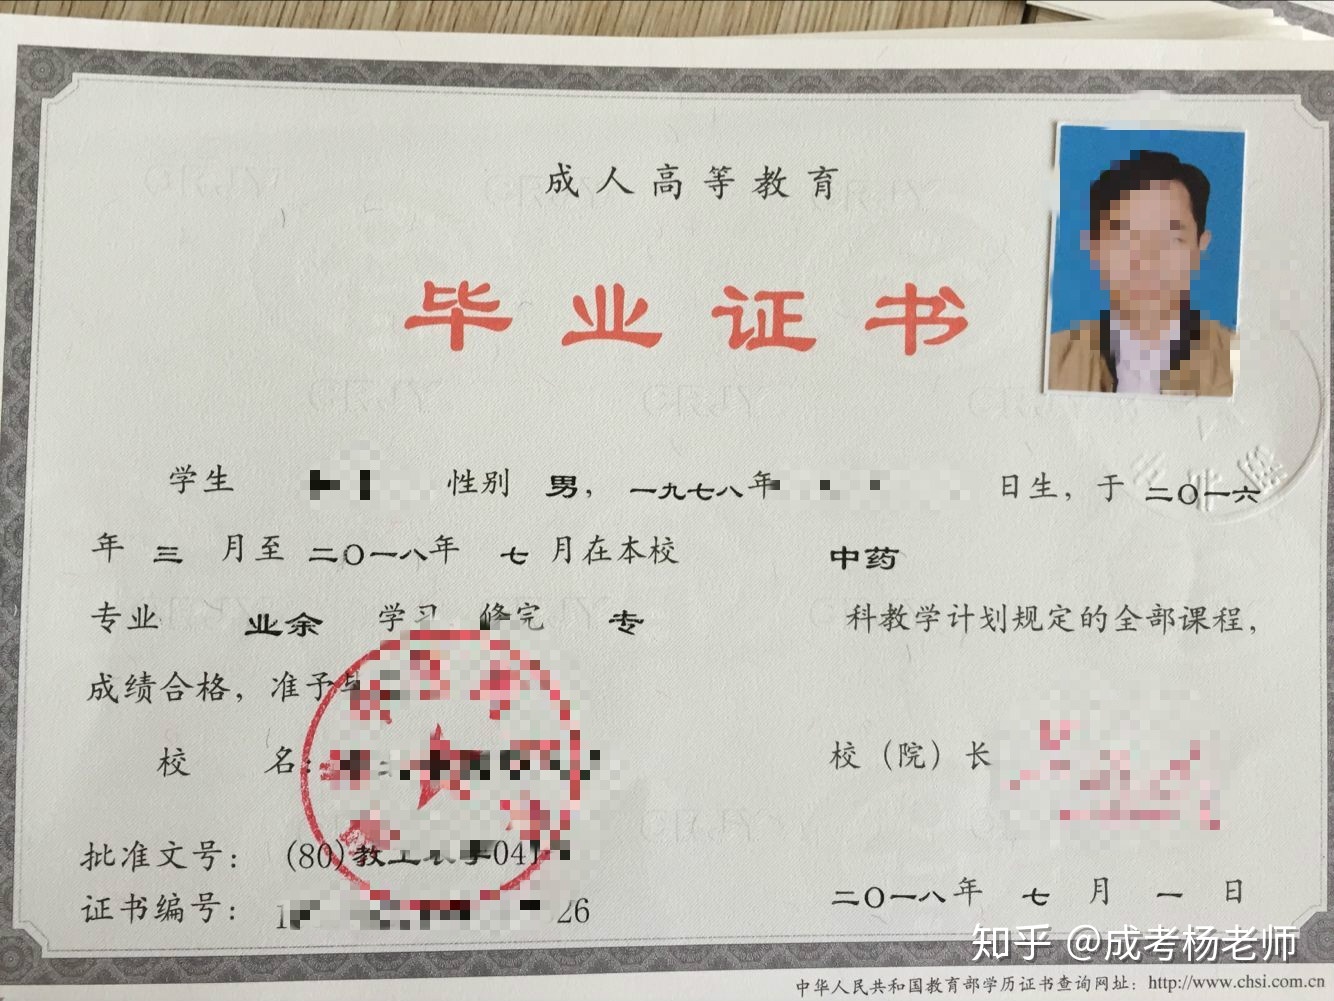 成人高等教育
毕业证书
学生 性别 男，一九七八年 日生，于 二〇一六
年 三 月至 二〇一八年 七 月在本校 中药
专业 业余 学习 修完 专 科教学计划规定的全部课程，
成绩合格，准予
校 名： 校（院）长
批准文号： (80)教工 041
证书编号： 1 26 二〇一八年 七 月 一 日
知乎 @成考杨老师
中华人民共和国教育部学历证书查询网址：http://www.chsi.com.cn